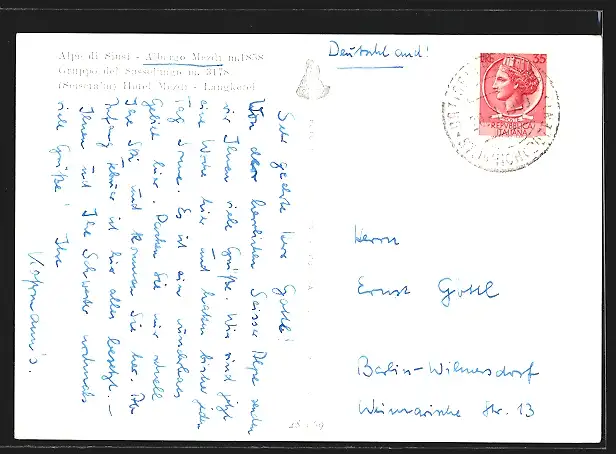 Alpe di Siusi - Albergo Mezdi m. 1858
Gruppo del Sassolungo m. 3178
(Seiseralm) Hotel Mezdi - Langkofel
Deutschland!
Lire 35
REPVBBLICA
ITALIANA
Sehr geehrter Herr Gottl!
Von der herrlichen Seiser Alpe senden
wir Ihnen viele Grüße. Wir sind jetzt
eine Woche hier und hatten bisher jeden
Tag Sonne. Es ist ein wunderbares
Gebiet hier. Packen Sie nur schnell
Ihre Ski und kommen Sie her. Ab
Anfang Februar ist hier alles besetzt. -
Ihnen und Ihrer Schwester nochmals
viele Grüße! Ihre
Kopmann's.
Herrn
Ernst Gottl
Berlin-Wilmersdorf
Weimarische Str. 13